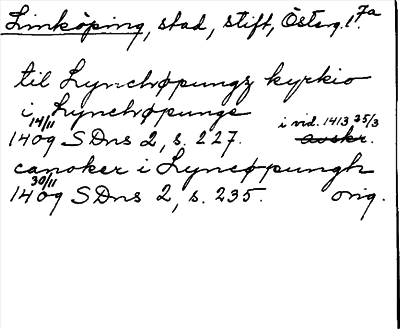 Linköping, stad, stift, Österg. l. 7a
til Lynchøpungz kyrkio
i Lynchøpunge
14/11 1409 SDns 2, s. 227. i vid. 1413 25/3 avskr.
canoker i Lyncøpungh
30/11 1409 SDns 2, s. 235. orig.